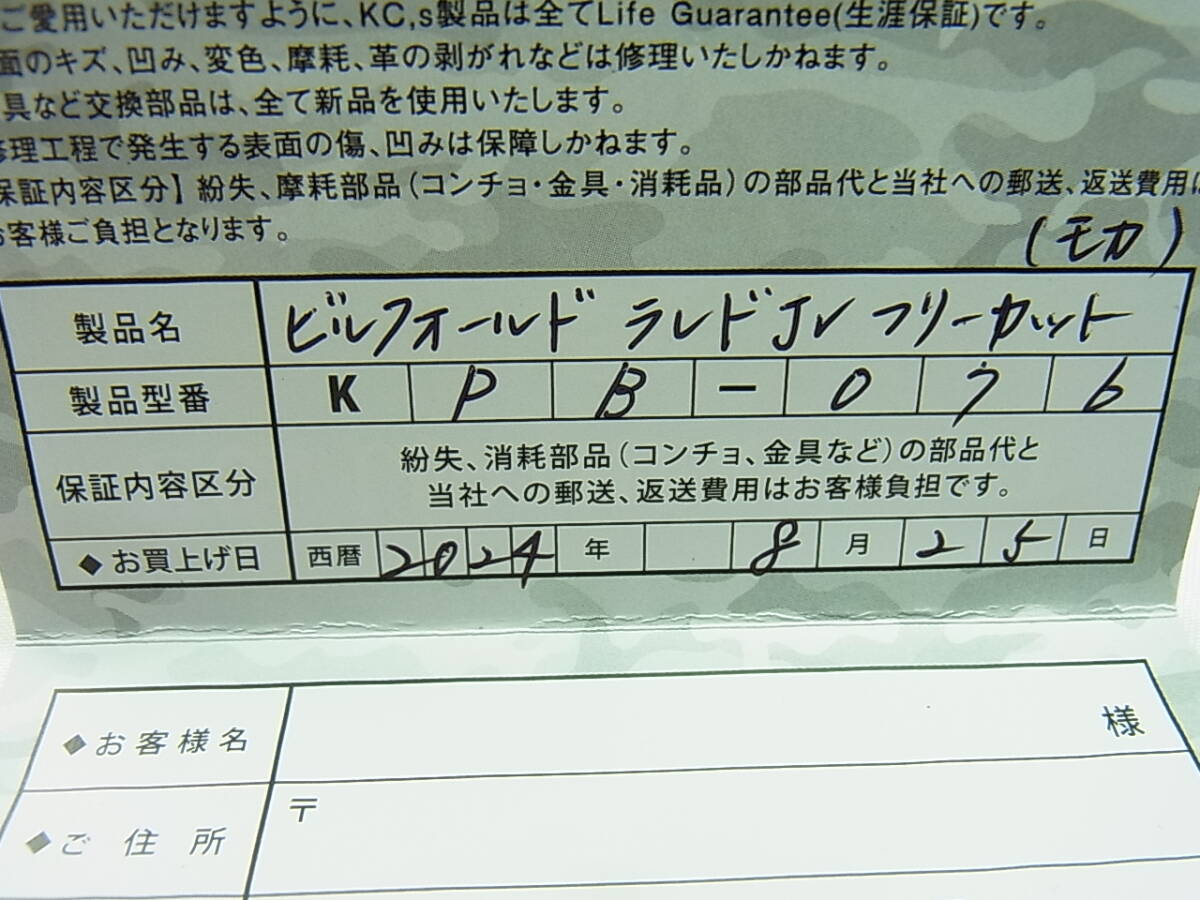 ご愛用いただけますように、KC,s製品は全てLife Guarantee(生涯保証)です。
面のキズ、凹み、変色、摩耗、革の剥がれなどは修理いたしかねます。
具など交換部品は、全て新品を使用いたします。
修理工程で発生する表面の傷、凹みは保障しかねます。
保証内容区分】紛失、摩耗部品(コンチョ・金具・消耗品)の部品代と当社への郵送、返送費用は
お客様ご負担となります。
(モカ)
製品名 ビルフォールド ラレドJr フリーカット
製品型番 K P B - 0 7 6
保証内容区分 紛失、消耗部品(コンチョ、金具など)の部品代と
当社への郵送、返送費用はお客様負担です。
◆お買上げ日 西暦 2024 年 8 月 25 日
◆お客様名 様
◆ご住所 〒